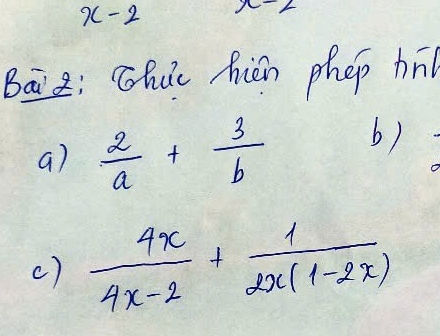 x-2
Bài 2: Thực hiện phép
a) 2/a + 3/b b)
c) 4x/(4x-2) + 1/(2x(1-2x))